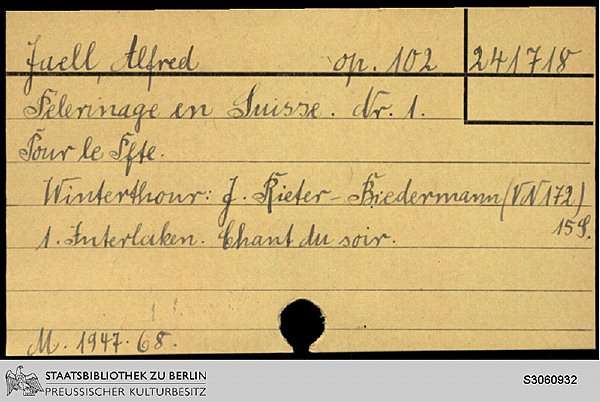 Jaell, Alfred op. 102 241718
Pèlerinage en Suisse. Nr. 1.
Pour le Pfte.
Winterthour: J. Rieter-Biedermann (VN 172)
15 S.
1. Interlaken. Chant du soir.
M. 1947. 68.
STAATSBIBLIOTHEK ZU BERLIN
PREUSSISCHER KULTURBESITZ
S3060932